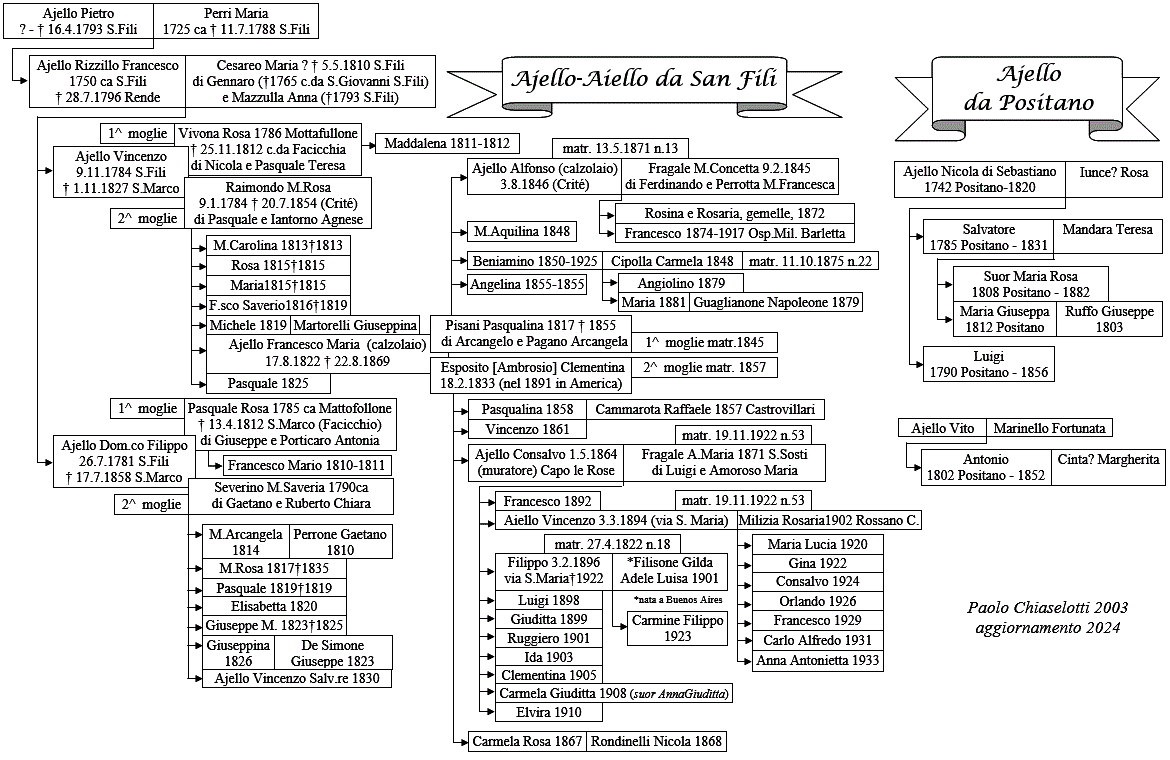 Ajello Pietro
? - † 16.4.1793 S.Fili
Perri Maria
1725 ca † 11.7.1788 S.Fili
Ajello Rizzillo Francesco
1750 ca S.Fili
† 28.7.1796 Rende
Cesareo Maria ? † 5.5.1810 S.Fili
di Gennaro (†1765 c.da S.Giovanni S.Fili)
e Mazzulla Anna (†1793 S.Fili)
Ajello-Aiello da San Fili
Ajello
da Positano
1^ moglie
Vivona Rosa 1786 Mottafullone
† 25.11.1812 c.da Facicchia
di Nicola e Pasquale Teresa
Maddalena 1811-1812
Ajello Vincenzo
9.11.1784 S.Fili
† 1.11.1827 S.Marco
2^ moglie
Raimondo M.Rosa
9.1.1784 † 20.7.1854 (Crité)
di Pasquale e Iantorno Agnese
M.Carolina 1813†1813
Rosa 1815†1815
Maria1815†1815
F.sco Saverio1816†1819
Michele 1819
Martorelli Giuseppina
Ajello Francesco Maria (calzolaio)
17.8.1822 † 22.8.1869
Pasquale 1825
1^ moglie
Pasquale Rosa 1785 ca Mattofollone
† 13.4.1812 S.Marco (Facicchio)
di Giuseppe e Porticaro Antonia
Francesco Mario 1810-1811
Ajello Dom.co Filippo
26.7.1781 S.Fili
† 17.7.1858 S.Marco
2^ moglie
Severino M.Saveria 1790ca
di Gaetano e Ruberto Chiara
M.Arcangela
1814
Perrone Gaetano
1810
M.Rosa 1817†1835
Pasquale 1819†1819
Elisabetta 1820
Giuseppe M. 1823†1825
Giuseppina
1826
De Simone
Giuseppe 1823
Ajello Vincenzo Salv.re 1830
matr. 13.5.1871 n.13
Ajello Alfonso (calzolaio)
3.8.1846 (Crité)
Fragale M.Concetta 9.2.1845
di Ferdinando e Perrotta M.Francesca
Rosina e Rosaria, gemelle, 1872
Francesco 1874-1917 Osp.Mil. Barletta
M.Aquilina 1848
Beniamino 1850-1925
Cipolla Carmela 1848
matr. 11.10.1875 n.22
Angelina 1855-1855
Angiolino 1879
Maria 1881
Guaglianone Napoleone 1879
Pisani Pasqualina 1817 † 1855
di Arcangelo e Pagano Arcangela
1^ moglie matr.1845
Esposito [Ambrosio] Clementina
18.2.1833 (nel 1891 in America)
2^ moglie matr. 1857
Pasqualina 1858
Cammarota Raffaele 1857 Castrovillari
Vincenzo 1861
matr. 19.11.1922 n.53
Ajello Consalvo 1.5.1864
(muratore) Capo le Rose
Fragale A.Maria 1871 S.Sosti
di Luigi e Amoroso Maria
Francesco 1892
matr. 19.11.1922 n.53
Aiello Vincenzo 3.3.1894 (via S. Maria)
Milizia Rosaria1902 Rossano C.
matr. 27.4.1822 n.18
Filippo 3.2.1896
via S.Maria†1922
*Filisone Gilda
Adele Luisa 1901
*nata a Buenos Aires
Carmine Filippo
1923
Luigi 1898
Giuditta 1899
Ruggiero 1901
Ida 1903
Clementina 1905
Carmela Giuditta 1908 (suor AnnaGiuditta)
Elvira 1910
Maria Lucia 1920
Gina 1922
Consalvo 1924
Orlando 1926
Francesco 1929
Carlo Alfredo 1931
Anna Antonietta 1933
Carmela Rosa 1867
Rondinelli Nicola 1868
Ajello Nicola di Sebastiano
1742 Positano-1820
Iunce? Rosa
Salvatore
1785 Positano - 1831
Mandara Teresa
Suor Maria Rosa
1808 Positano - 1882
Maria Giuseppa
1812 Positano
Ruffo Giuseppe
1803
Luigi
1790 Positano - 1856
Ajello Vito
Marinello Fortunata
Antonio
1802 Positano - 1852
Cinta? Margherita
Paolo Chiaselotti 2003
aggiornamento 2024